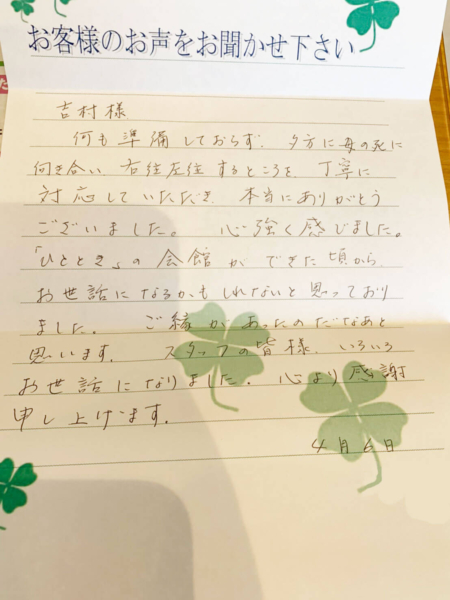 お客様のお声をお聞かせ下さい
吉村様
何も準備しておらず、夕方に母の死に
向き合い 右往左往するところを、丁寧に
対応していただき、本当にありがとう
ございました。 心強く感じました。
「ひととき」の会館ができた頃から、
お世話になるかもしれないと思っており
ました。 ご縁があったのだなあと
思います。 スタッフの皆様、いろいろ
お世話になりました。心より感謝
申し上げます。
4月6日
た